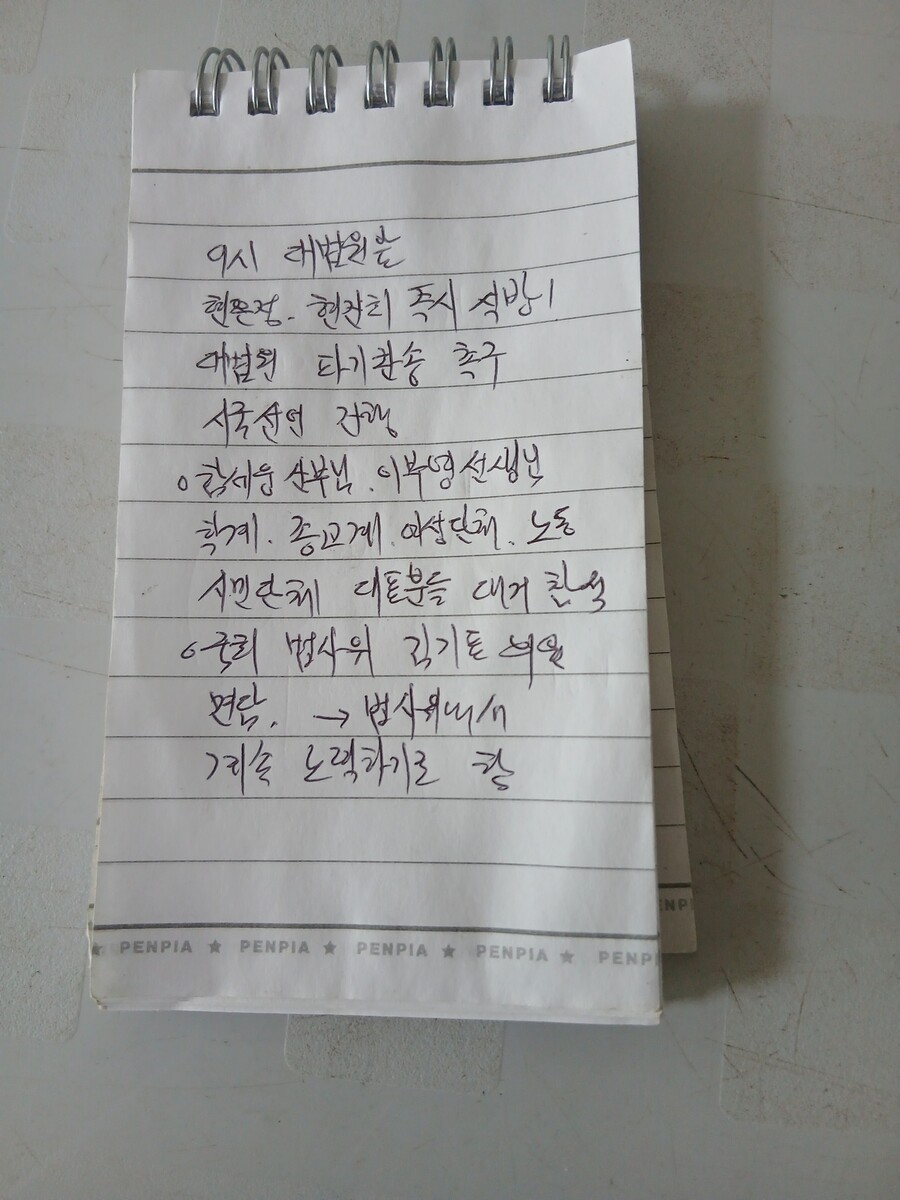 9시 대법원 앞
현은정. 현찬희 즉시 석방!
대법원 파기환송 촉구
시국선언 진행
o 함세웅 신부님. 이부영 선생님
학계. 종교계. 여성단체. 노동
시민단체 대표분들 대거 참석
o 국회 법사위 김기표 의원
면담. → 법사위내에서
계속 노력하기로 함
★ PENPIA ★ PENPIA ★ PENPIA ★ PENPIA ★ PENPI
ENPI